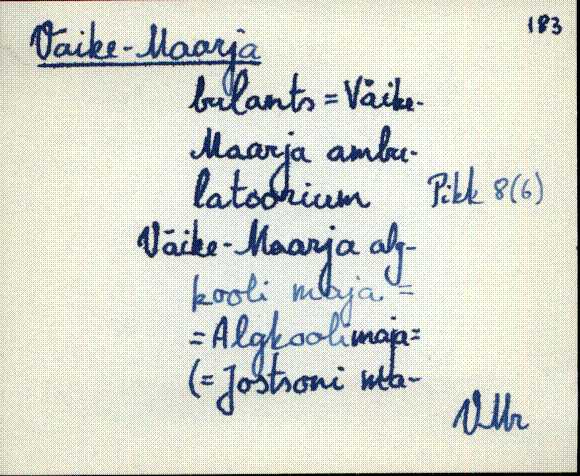 183
Väike-Maarja
bulants = Väike-
Maarja ambu-
latoorium Pikk 8(6)
Väike-Maarja alg-
kooli maja =
= Algkoolimaja =
(= Jostsoni ma-
VMr